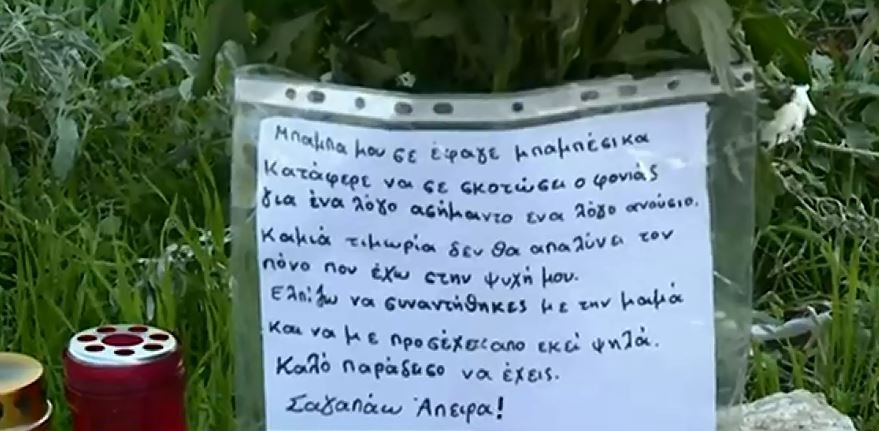 Μπαμπα μου σε έφαγε μπαμπέσικα
Κατάφερε να σε σκοτώσει ο φονιάς
για ένα λόγο ασήμαντο ένα λόγο ανούσιο.
Καμιά τιμωρία δεν θα απαλύνει τον
πόνο που έχω στην ψυχή μου.
Ελπίζω να συναντήθηκες με την μαμά
και να με προσέχεις απο εκεί ψηλά.
Καλό παράδεισο να έχεις.
Σαγαπάω Άπειρα!